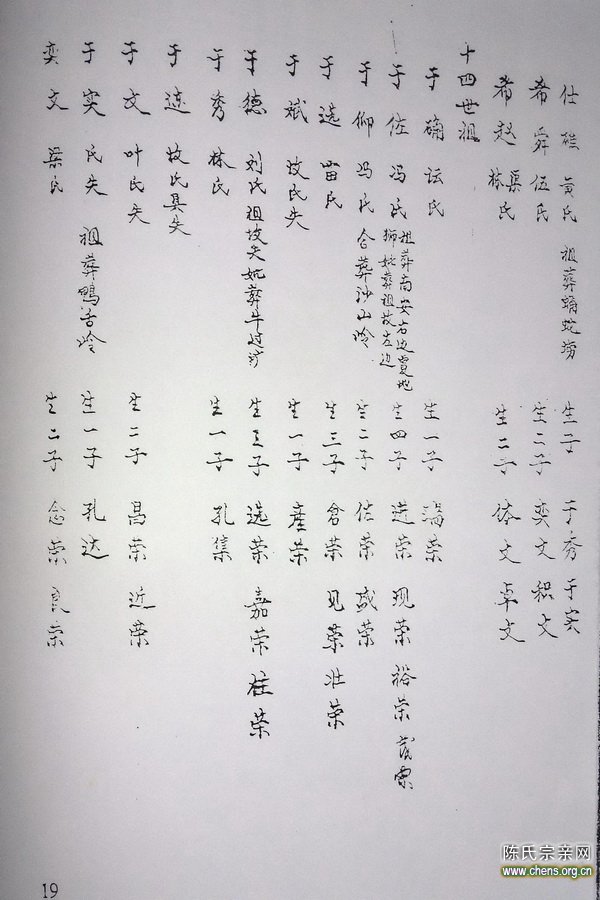 仕 黄氏 祖葬 生子 于秀 于实
希舜 伍氏 生二子 奕文 积文
希赵 梁 林氏 生二子 体文 卓文
十四世祖
于确 坛氏 生一子 瑞荣
于佐 冯氏 祖葬南安右边覓地 狮 妣葬祖坟左边 生四子 进荣 现荣 裕荣 茂荣
于仰 冯氏 合葬沙山岭 生二子 佐荣 成荣
于选 雷氏 生三子 仓荣 见荣 壮荣
于斌 坟氏失 生一子 产荣
于德 刘氏 祖坟失 妣葬牛过 生三子 选荣 嘉荣 柱荣
于秀 林氏 生一子 孔集
于 坟氏具失
于文 叶氏失 生二子 昌荣 近荣
于实 氏失 祖葬鸭舌岭 生一子 孔达
奕文 梁氏 生二子 念荣 良荣
19
陈氏宗亲网
www.chens.org.cn